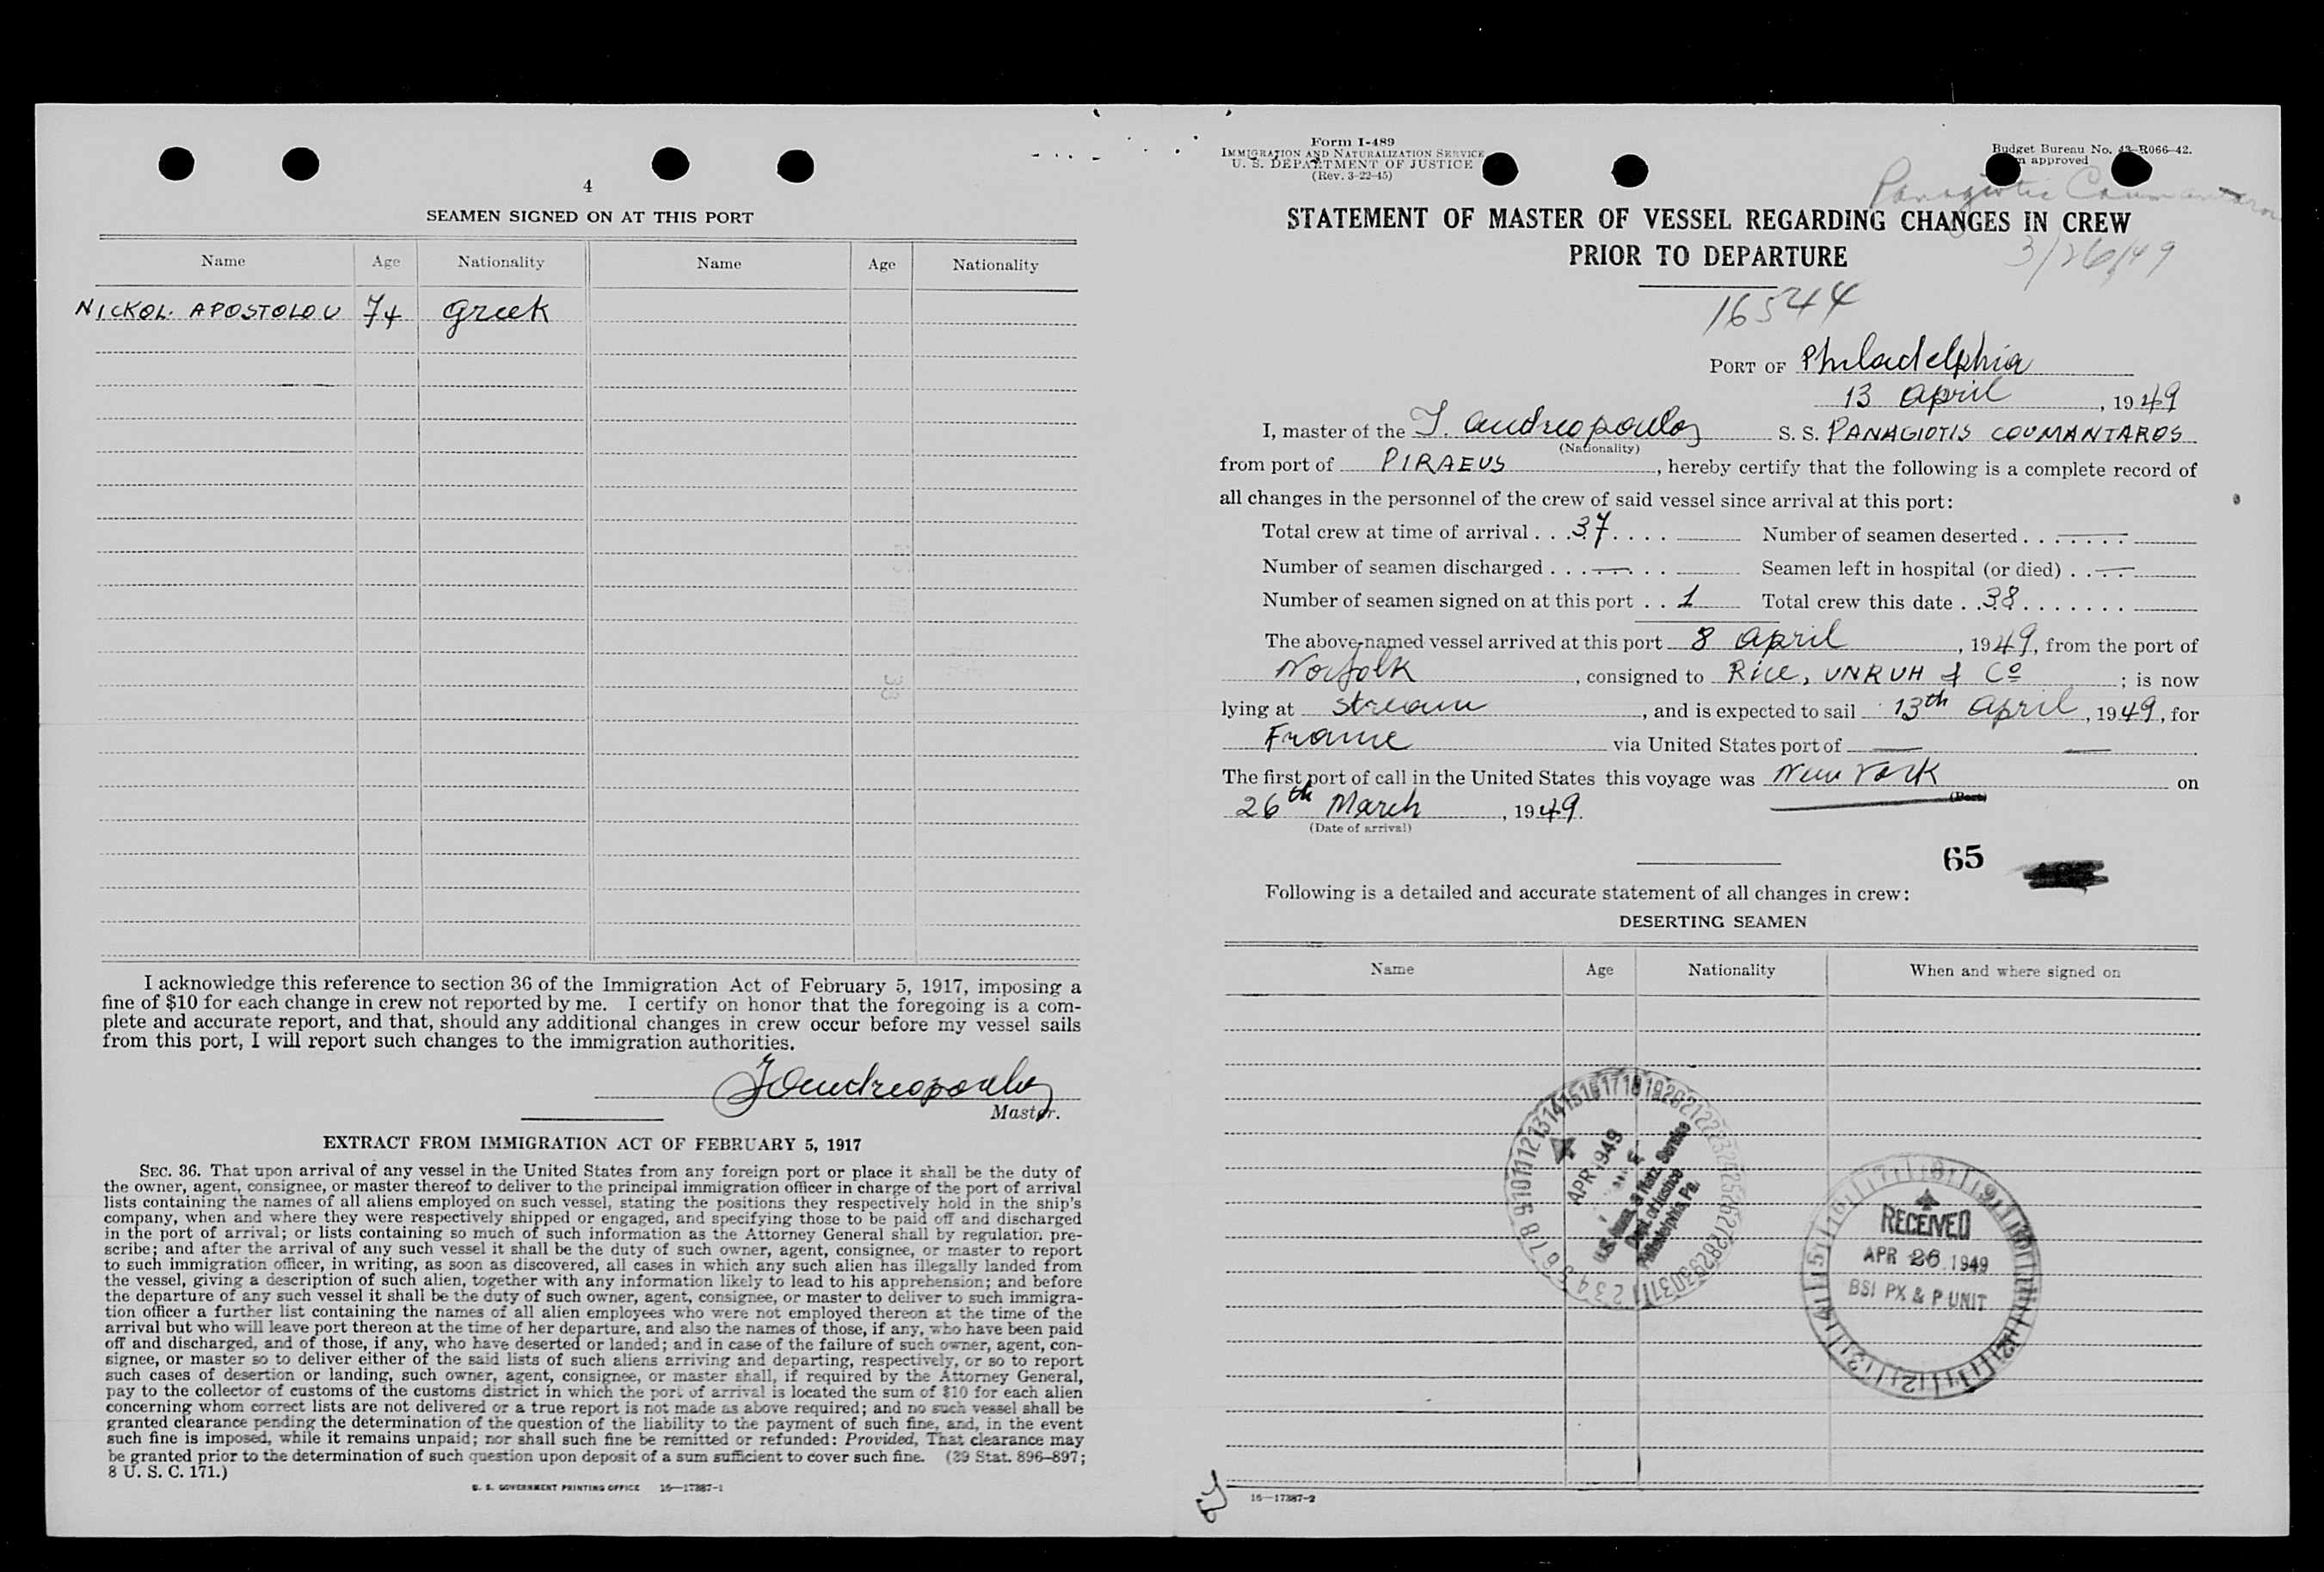 4
SEAMEN SIGNED ON AT THIS PORT
Name Age Nationality Name Age Nationality
NICKOL. APOSTOLOU 74 Greek
I acknowledge this reference to section 36 of the Immigration Act of February 5, 1917, imposing a
fine of $10 for each change in crew not reported by me. I certify on honor that the foregoing is a com-
plete and accurate report, and that, should any additional changes in crew occur before my vessel sails
from this port, I will report such changes to the immigration authorities.
J Andreopoulos
Master.
EXTRACT FROM IMMIGRATION ACT OF FEBRUARY 5, 1917
SEC. 36. That upon arrival of any vessel in the United States from any foreign port or place it shall be the duty of
the owner, agent, consignee, or master thereof to deliver to the principal immigration officer in charge of the port of arrival
lists containing the names of all aliens employed on such vessel, stating the positions they respectively hold in the ship's
company, when and where they were respectively shipped or engaged, and specifying those to be paid off and discharged
in the port of arrival; or lists containing so much of such information as the Attorney General shall by regulation pre-
scribe; and after the arrival of any such vessel it shall be the duty of such owner, agent, consignee, or master to report
to such immigration officer, in writing, as soon as discovered, all cases in which any such alien has illegally landed from
the vessel, giving a description of such alien, together with any information likely to lead to his apprehension; and before
the departure of any such vessel it shall be the duty of such owner, agent, consignee, or master to deliver to such immigra-
tion officer a further list containing the names of all alien employees who were not employed thereon at the time of the
arrival but who will leave port thereon at the time of her departure, and also the names of those, if any, who have been paid
off and discharged, and of those, if any, who have deserted or landed; and in case of the failure of such owner, agent, con-
signee, or master so to deliver either of the said lists of such aliens arriving and departing, respectively, or so to report
such cases of desertion or landing, such owner, agent, consignee, or master shall, if required by the Attorney General,
pay to the collector of customs of the customs district in which the port of arrival is located the sum of $10 for each alien
concerning whom correct lists are not delivered or a true report is not made as above required; and no such vessel shall be
granted clearance pending the determination of the question of the liability to the payment of such fine, and, in the event
such fine is imposed, while it remains unpaid; nor shall such fine be remitted or refunded: Provided, That clearance may
be granted prior to the determination of such question upon deposit of a sum sufficient to cover such fine. (39 Stat. 896–897;
8 U. S. C. 171.)
U. S. GOVERNMENT PRINTING OFFICE 16—17387-1
Form I-489
IMMIGRATION AND NATURALIZATION SERVICE
U. S. DEPARTMENT OF JUSTICE
(Rev. 3-22-45)
Budget Bureau No. 43-R066-42.
approved
Panagiotis
STATEMENT OF MASTER OF VESSEL REGARDING CHANGES IN CREW
PRIOR TO DEPARTURE
3/26/49
16544
PORT OF Philadelphia
13 April, 1949
I, master of the J. Andreopoulos S. S. PANAGIOTIS COUMANTAROS
(Nationality)
from port of PIRAEUS, hereby certify that the following is a complete record of
all changes in the personnel of the crew of said vessel since arrival at this port:
Total crew at time of arrival . . . 37 . . . . Number of seamen deserted . . . — . . .
Number of seamen discharged . . . — . . . Seamen left in hospital (or died) . . —
Number of seamen signed on at this port . . 1 Total crew this date . . 38 . . . . . . .
The above-named vessel arrived at this port 8 April, 1949, from the port of
Norfolk, consigned to Rice, UNRUH & Co; is now
lying at stream, and is expected to sail 13th April, 1949, for
France via United States port of — —
The first port of call in the United States this voyage was New York on
(Port)
26th March, 1949.
(Date of arrival)
65
Following is a detailed and accurate statement of all changes in crew:
DESERTING SEAMEN
Name Age Nationality When and where signed on
APR 1949
U.S. Immig. & Natz. Service
Dept. of Justice
Philadelphia, Pa.
RECEIVED
APR 26 1949
BSI PX & P UNIT
16—17387-2